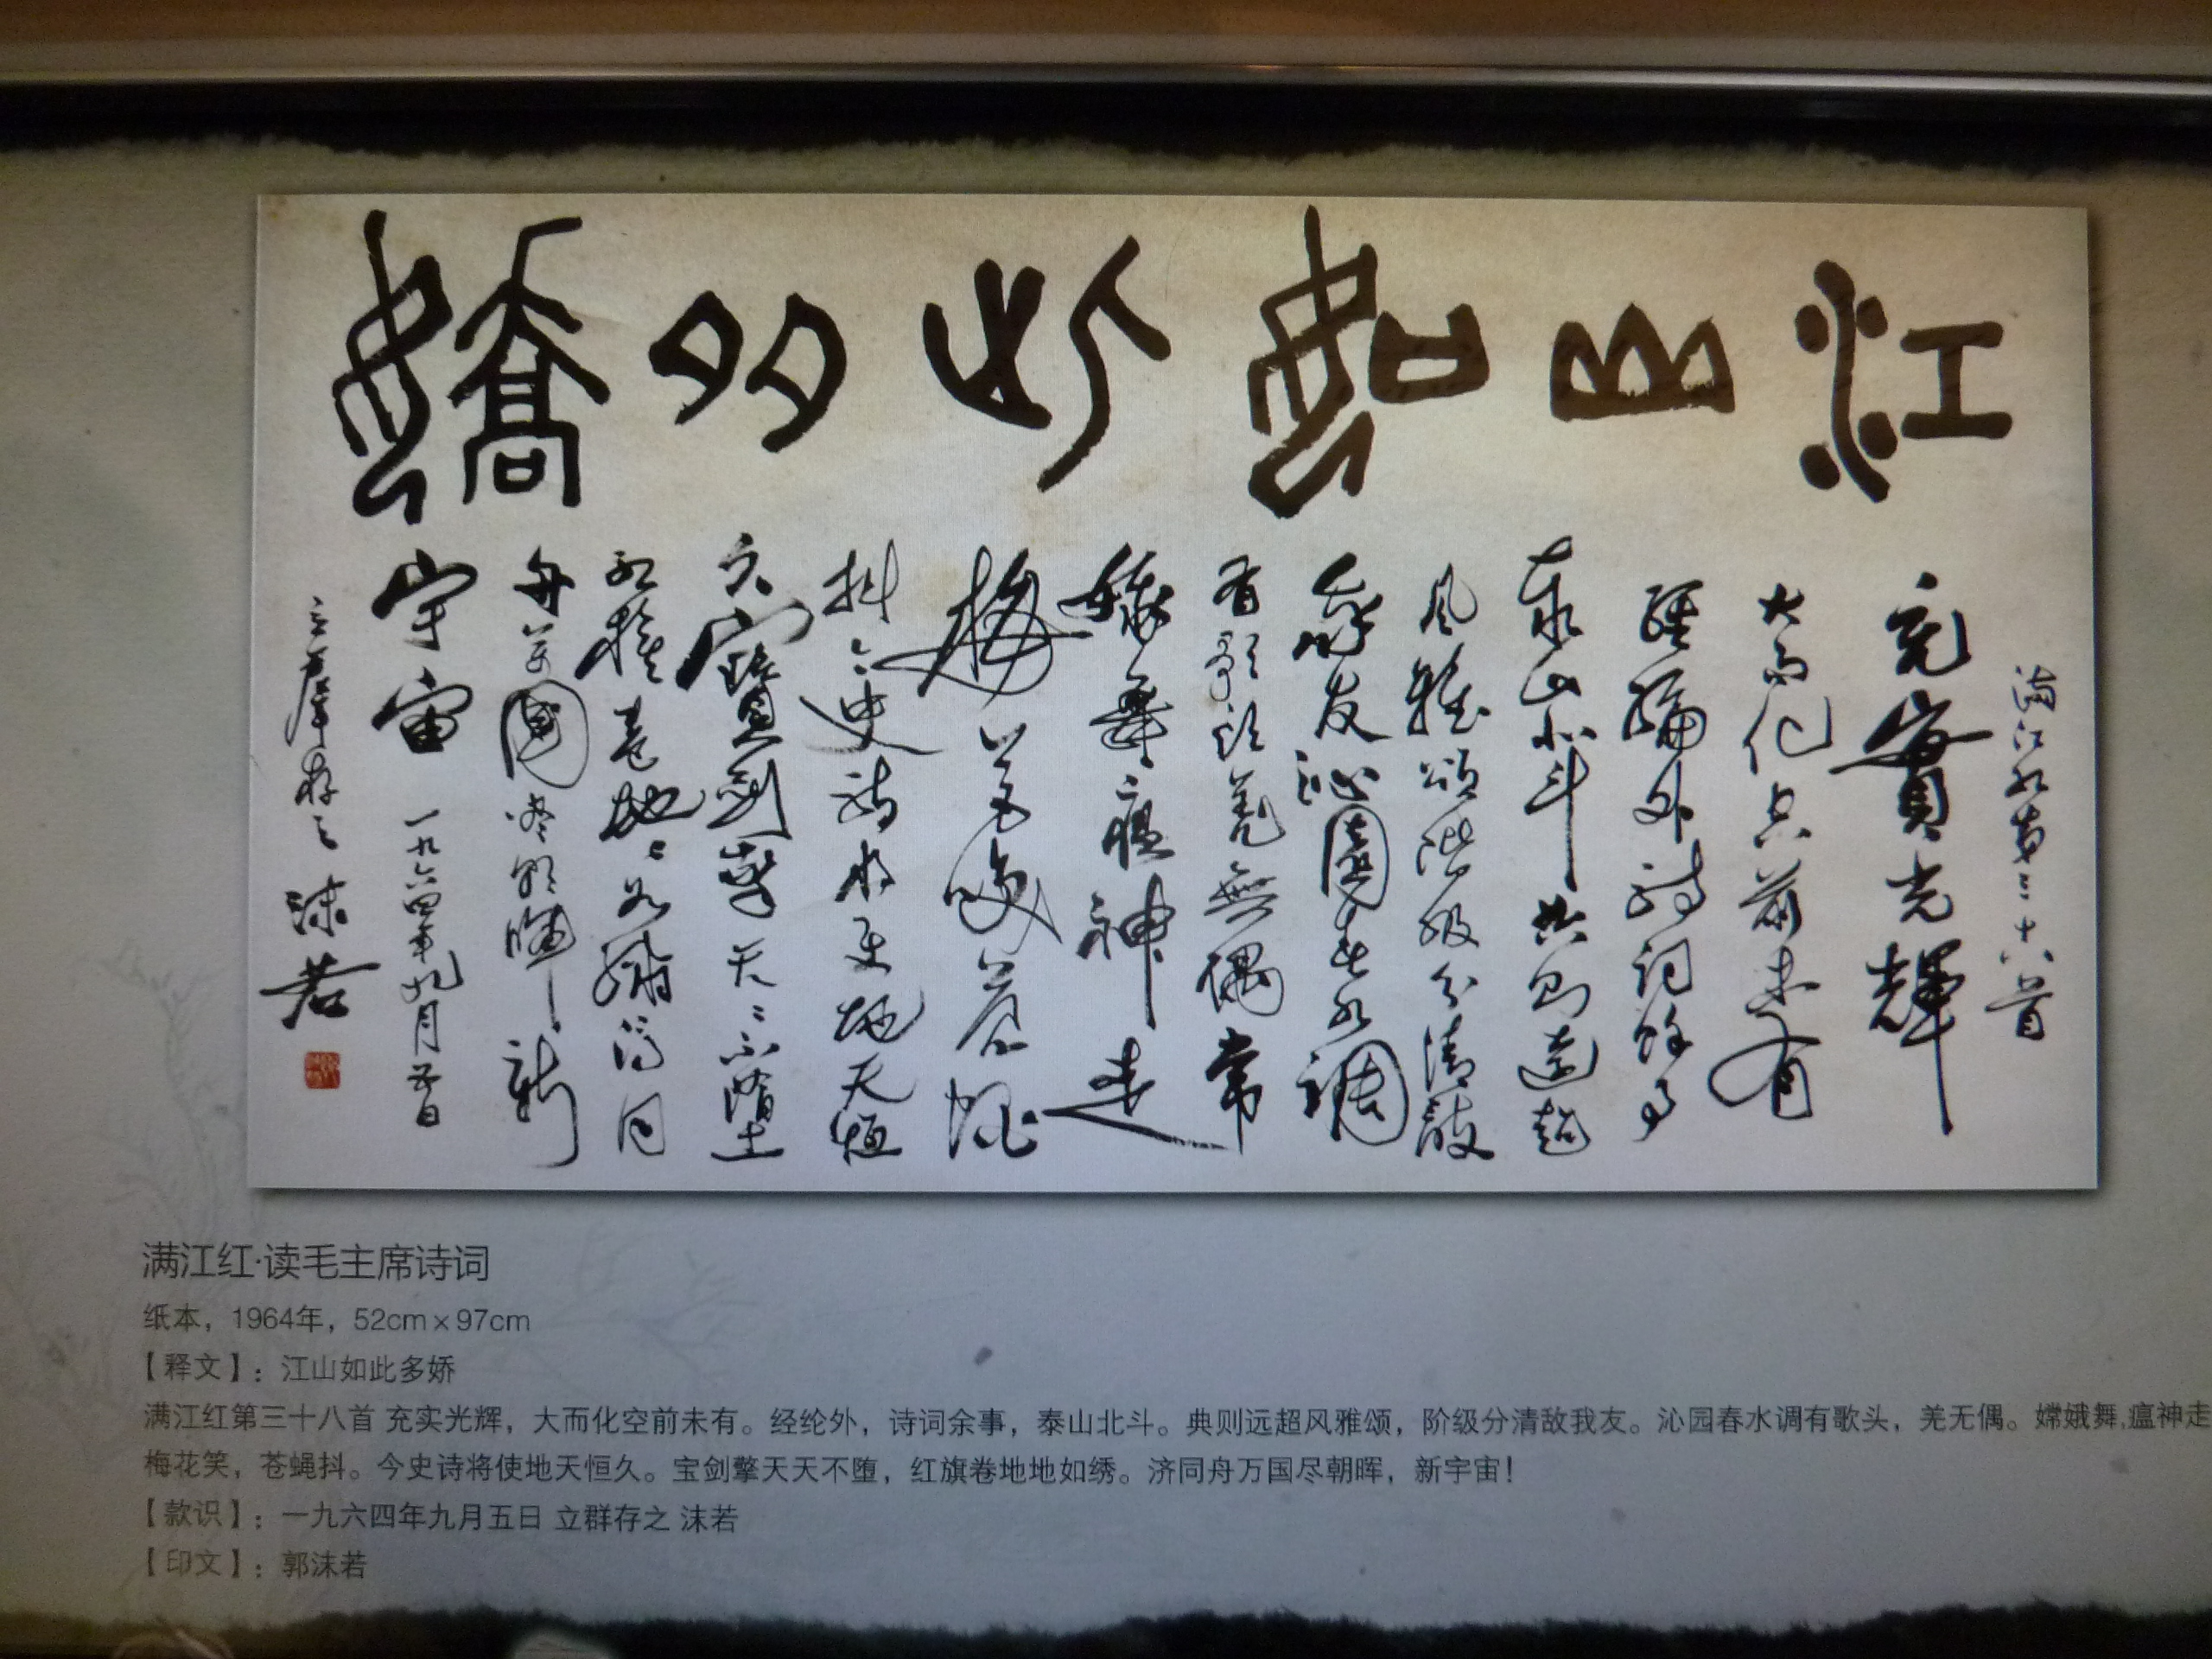 江山如此多嬌
滿江紅第三十八首
充實光輝
大而化空前未有
經綸外詩詞餘事
泰山北斗典則遠超
風雅頌階級分清敵
我友沁園春水調
有歌頭羌無偶常
娥舞瘟神走
梅花笑蒼蠅
抖今史詩將使地天恒
久寶劍擎天〻不墮
紅旗卷地〻如繡濟同
舟萬國盡朝暉新
宇宙 一九六四年九月五日
立群存之 沫若
满江红·读毛主席诗词
纸本，1964年，52cm×97cm
【释文】：江山如此多娇
满江红第三十八首 充实光辉，大而化空前未有。经纶外，诗词余事，泰山北斗。典则远超风雅颂，阶级分清敌我友。沁园春水调有歌头，羌无偶。嫦娥舞,瘟神走
梅花笑，苍蝇抖。今史诗将使地天恒久。宝剑擎天天不堕，红旗卷地地如绣。济同舟万国尽朝晖，新宇宙！
【款识】：一九六四年九月五日 立群存之 沫若
【印文】：郭沫若